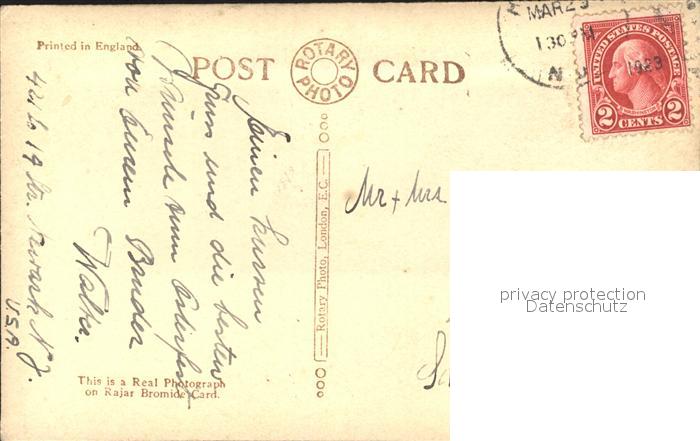 MAR 29
1 30 PM
N. J.
1923
UNITED STATES POSTAGE
WASHINGTON
2 CENTS 2
Printed in England
POST CARD
ROTARY PHOTO
Rotary Photo, London, E.C.
Einen kurzen
Gruss und die besten
Wünsche zum Osterfest
von Eurem Bruder
Walter.
421 So 19 Str. Newark N. J.
U.S.A.
Mr + Mrs
privacy protection
Datenschutz
This is a Real Photograph
on Rajar Bromide Card.